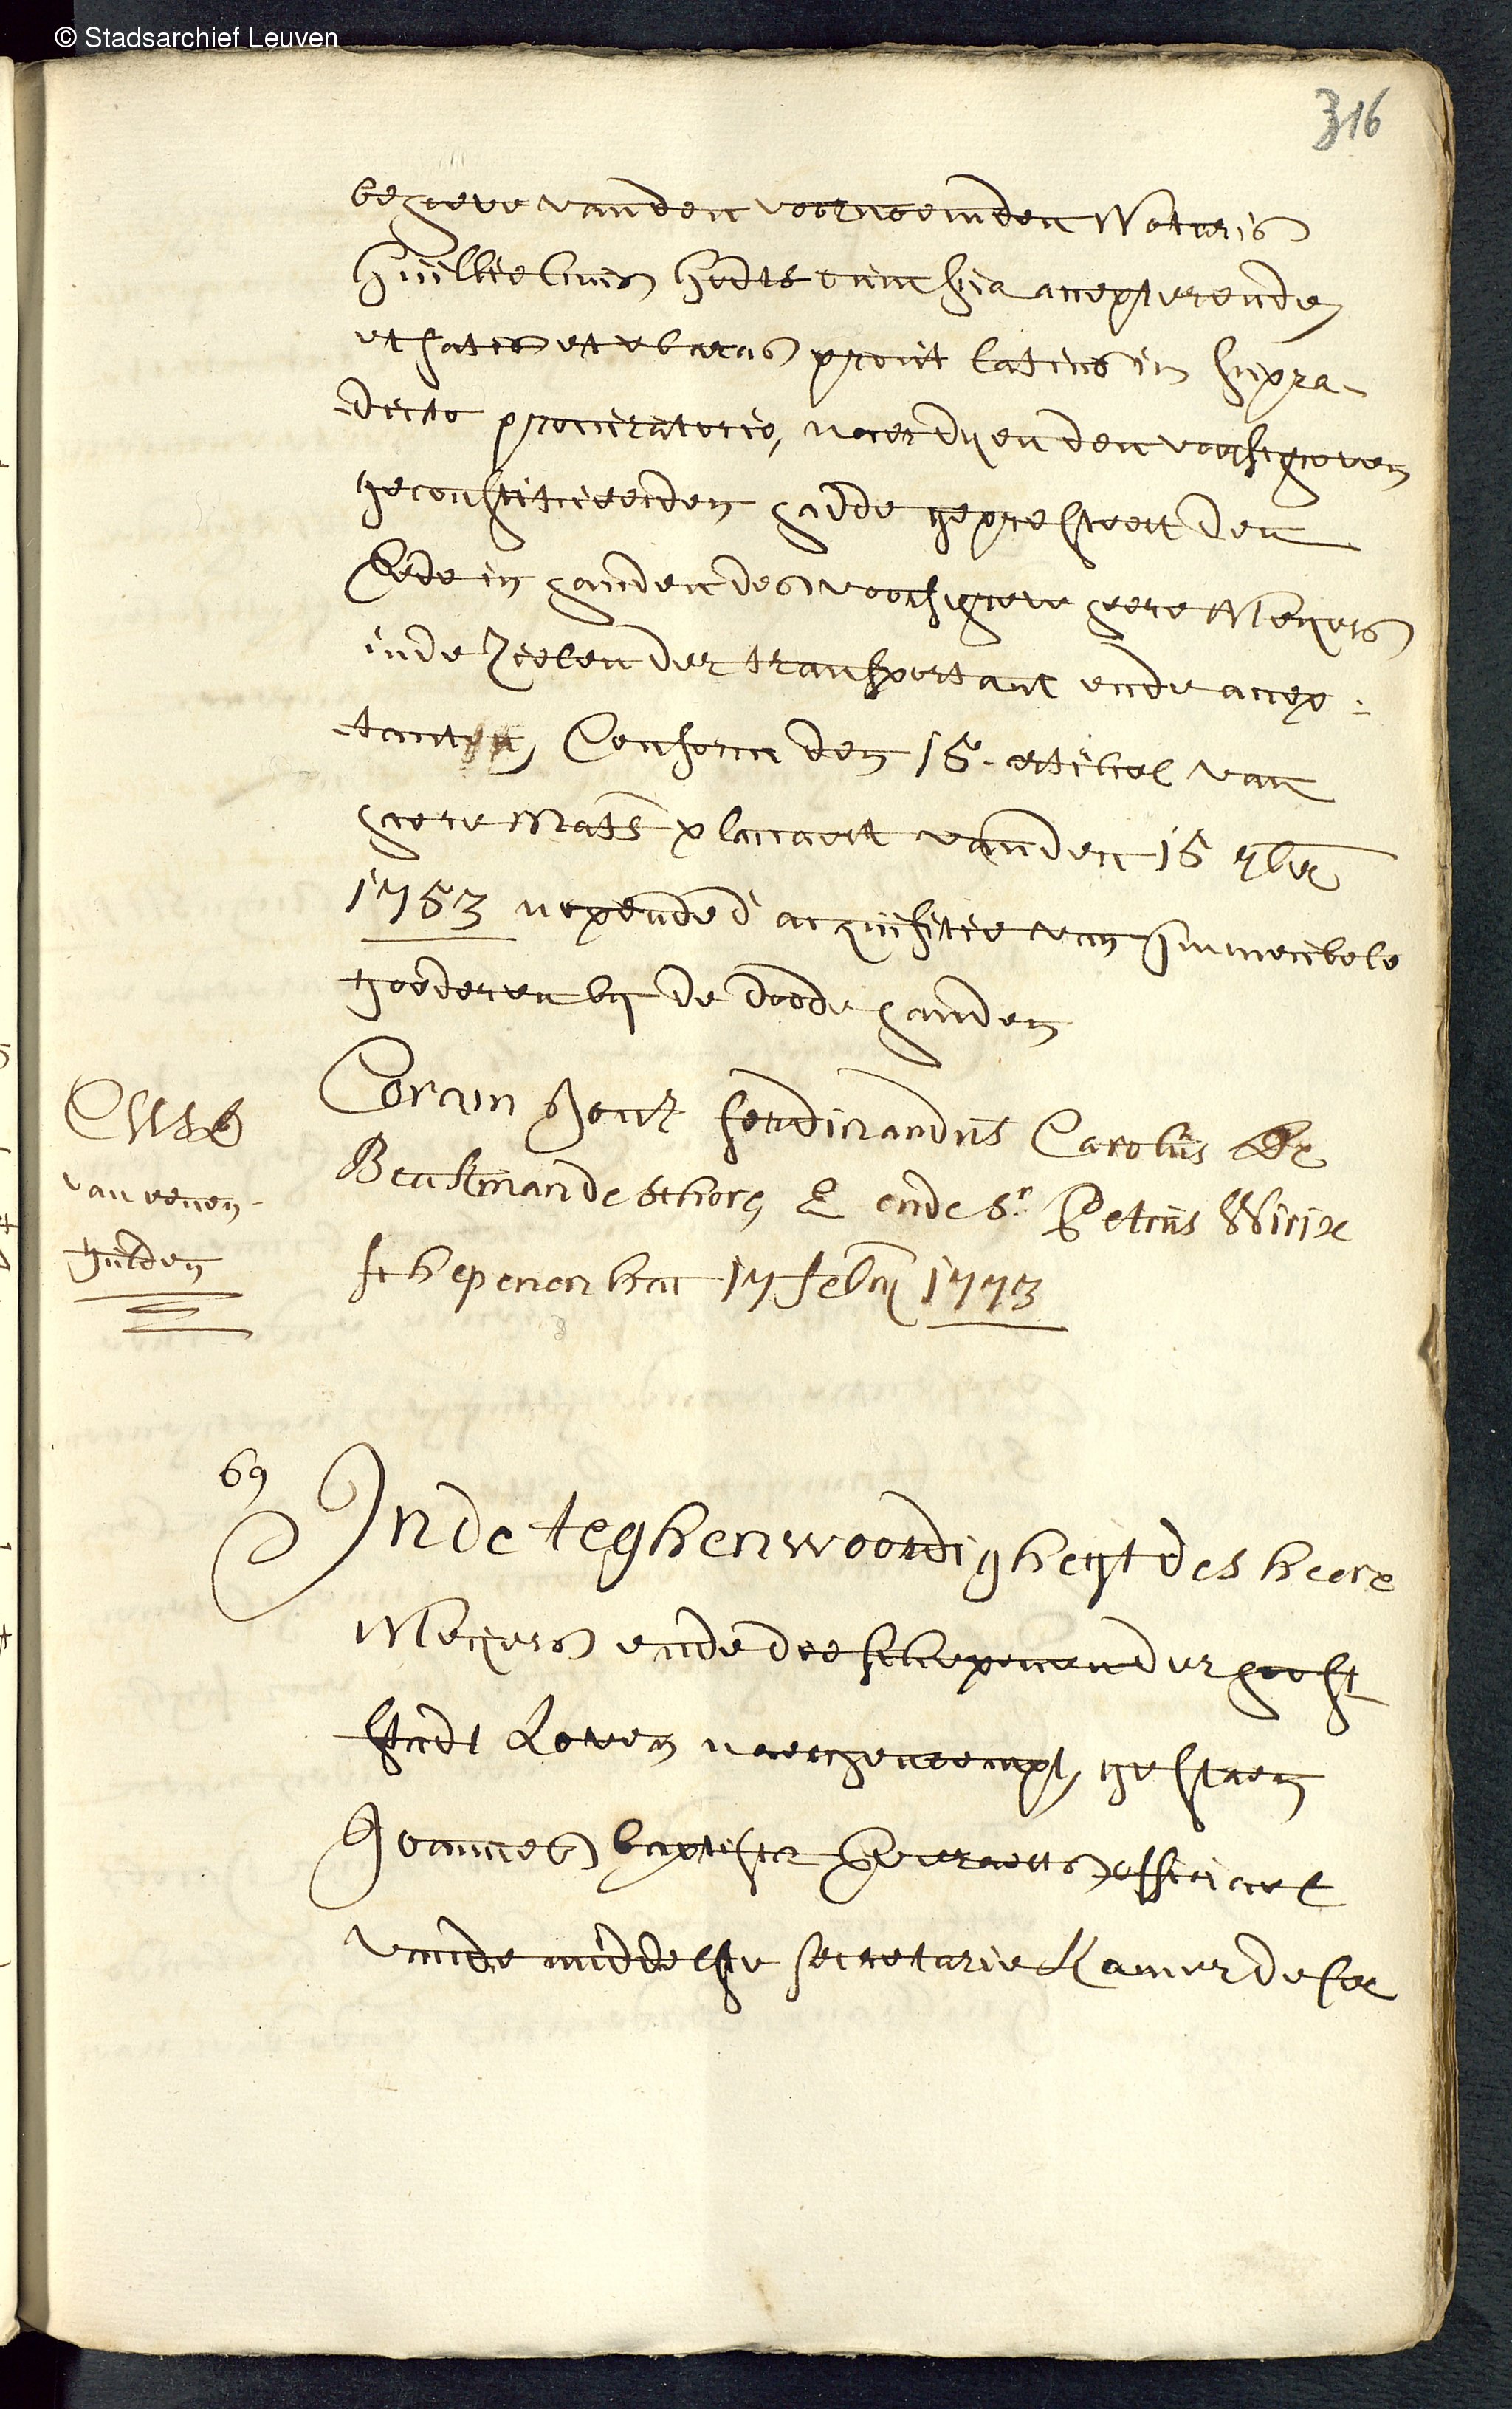 © Stadsarchief Leuven
316
behoeve vanden voornoemden Notaris
Guillielmus hodts cum sua accepterende
et satis et waras prout latius in supra-
dicto procuratorio, naer dyen den voorschreven
geconstitueerden hadde gepresteert den
Eede in handen des voorschreven heere Meyers
inde zielen der transportant ende accep-
tanten, Conform den 15. articel van
haere Mats placcaert vanden 15 7ber
1753 nopende d'acquisitie van Immeubele
goederen by de doode handen
Coram Joncker Ferdinandus Carolus De
Beckman de Schore & ende Sr Petrus Wirix
schepenen hac 17 feb 1773
van eenen
gulden
69
In de teghenwoordigheyt des heere
Meyers ende des schepenen der hooft
stadt Loven naergenoempt, gestaen
Joannes baptista Everaerts officiael
vande middelste secretarie Kamer deser